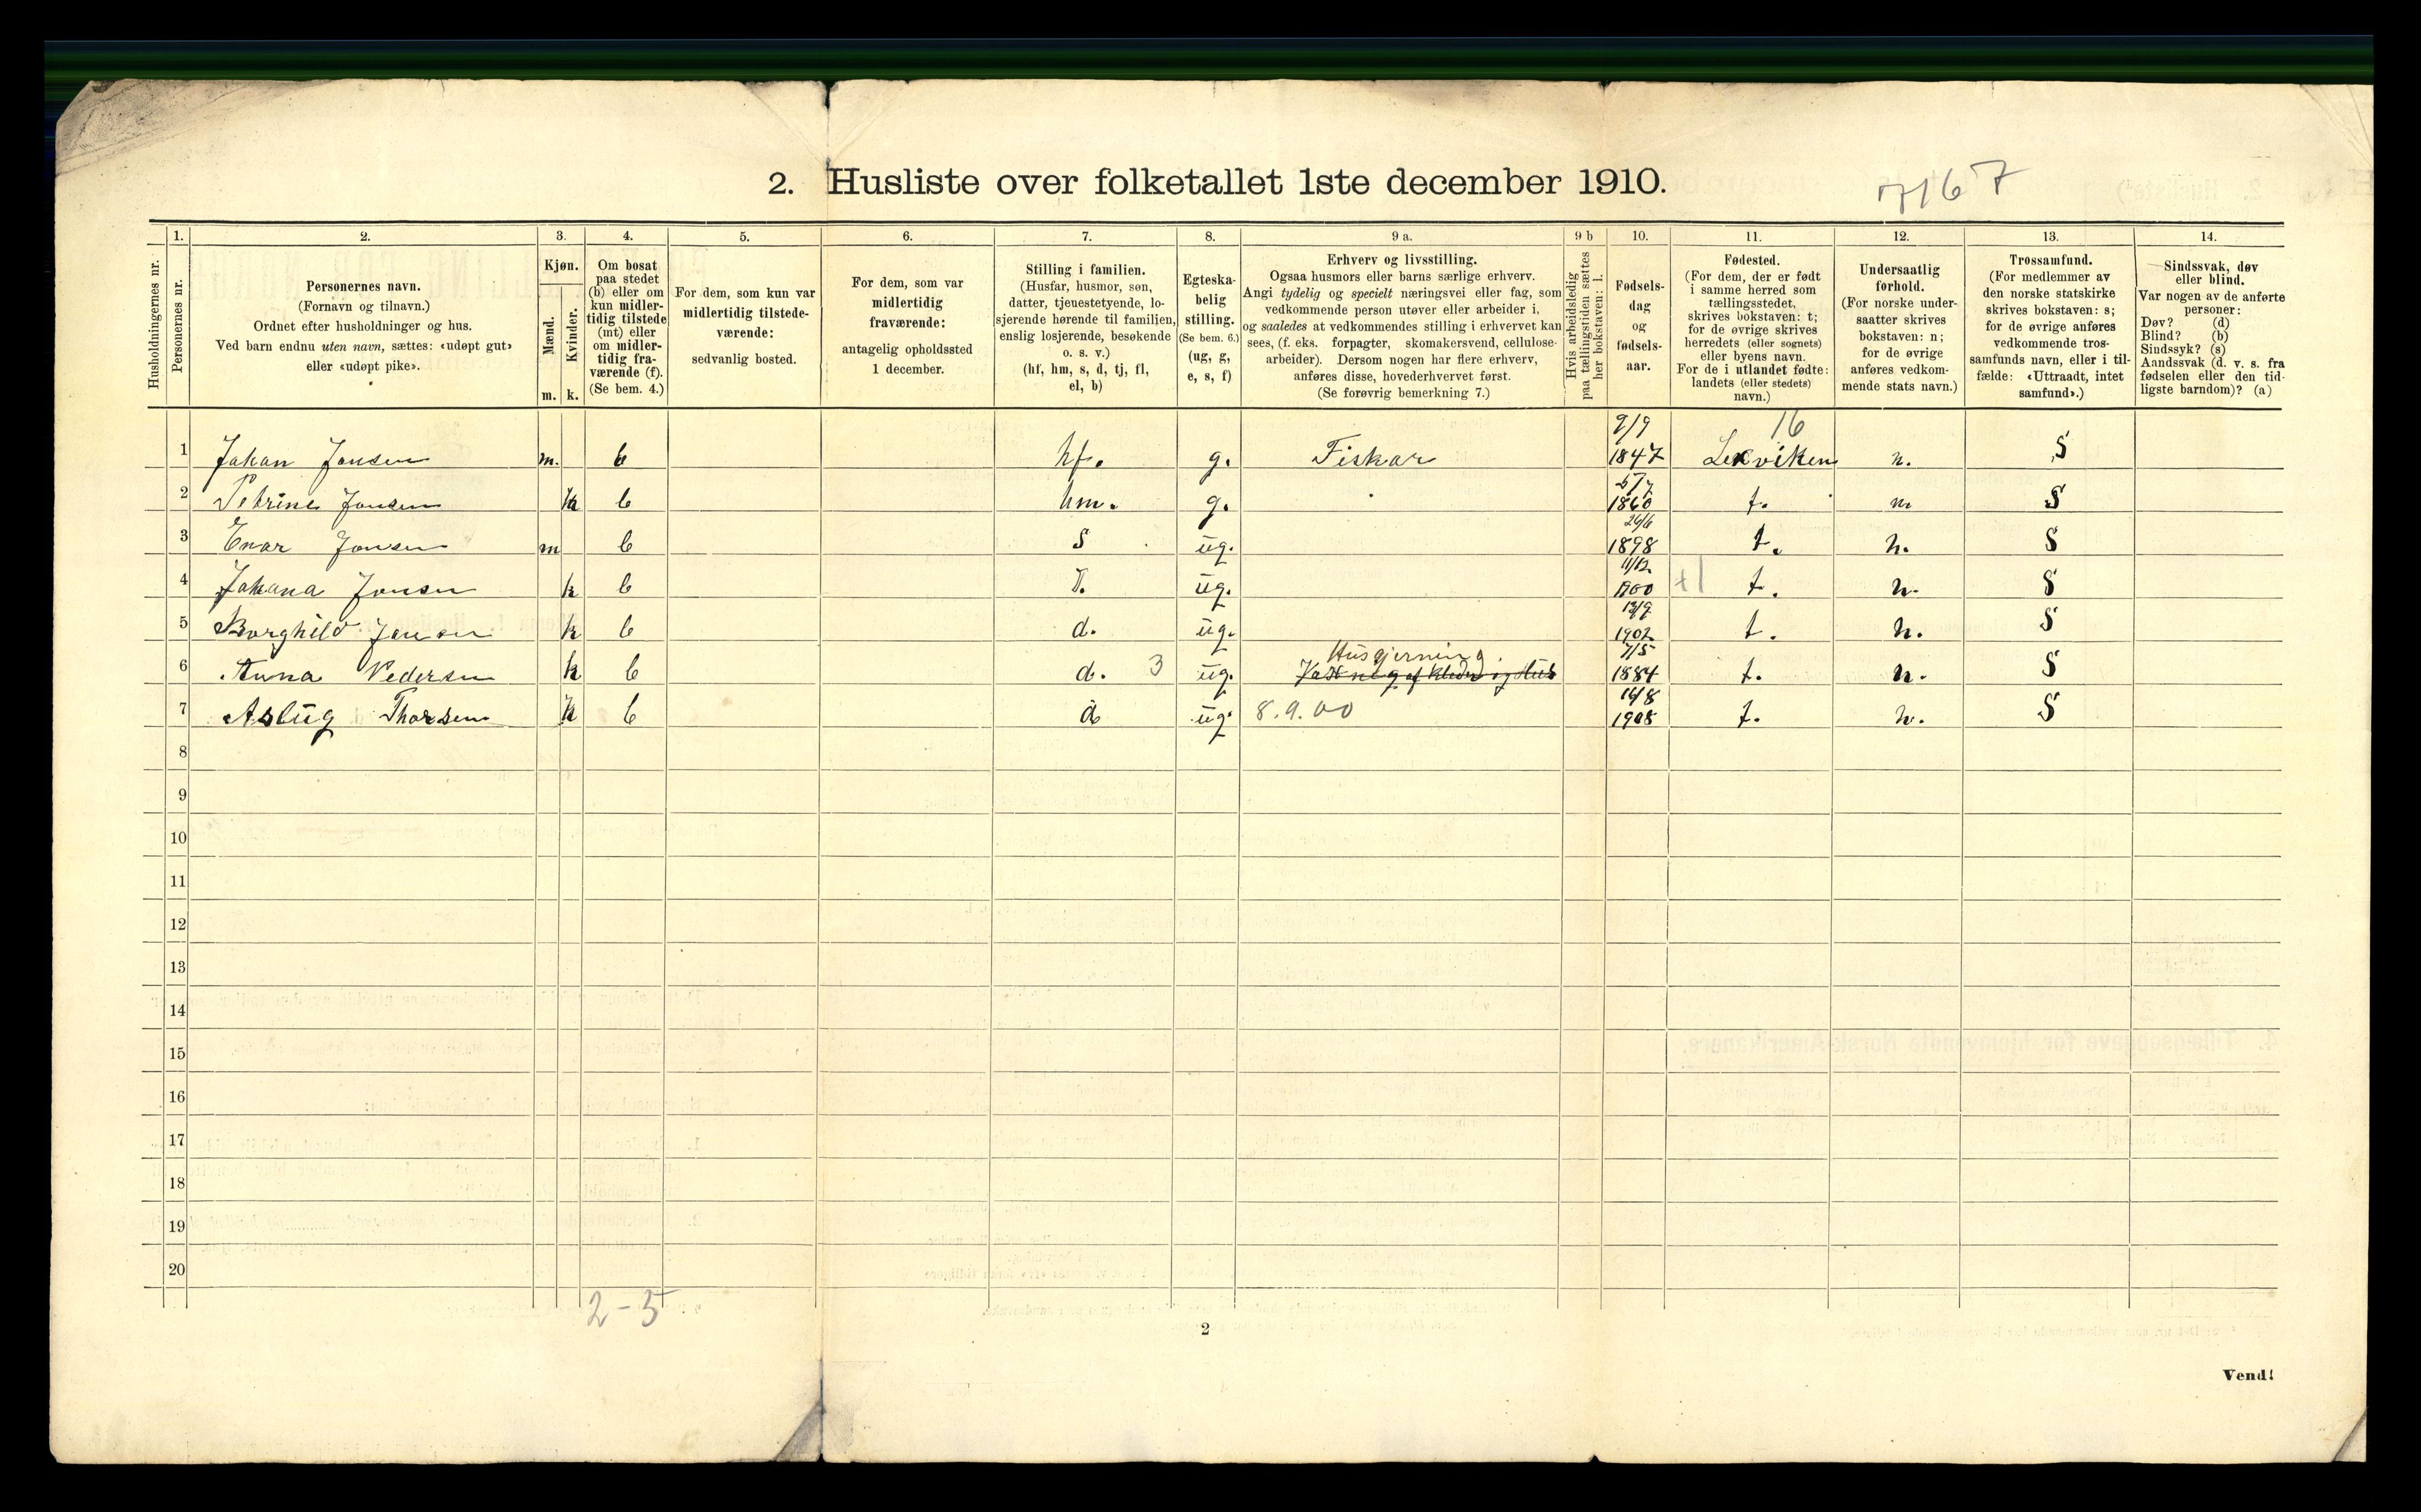 2. Husliste over folketallet 1ste december 1910.
7167
Husholdningernes nr.
1.
Personernes nr.
2.
Personernes navn.
(Fornavn og tilnavn.)
Ordnet efter husholdninger og hus.
Ved barn endnu uten navn, sættes: «udøpt gut»
eller «udøpt pike».
3.
Kjøn.
Mænd.
Kvinder.
m. k.
4.
Om bosat
paa stedet
(b) eller om
kun midler-
tidig tilstede
(mt) eller
om midler-
tidig fra-
værende (f).
(Se bem. 4.)
5.
For dem, som kun var
midlertidig tilstede-
værende:
sedvanlig bosted.
6.
For dem, som var
midlertidig
fraværende:
antagelig opholdssted
1 december.
7.
Stilling i familien.
(Husfar, husmor, søn,
datter, tjenestetyende, lo-
sjerende hørende til familien,
enslig losjerende, besøkende
o. s. v.)
(hf, hm, s, d, tj, fl,
el, b)
8.
Egteska-
belig
stilling.
(Se bem. 6.)
(ug, g,
e, s, f)
9 a.
Erhverv og livsstilling.
Ogsaa husmors eller barns særlige erhverv.
Angi tydelig og specielt næringsvei eller fag, som
vedkommende person utøver eller arbeider i,
og saaledes at vedkommendes stilling i erhvervet kan
sees, (f. eks. forpagter, skomakersvend, cellulose-
arbeider). Dersom nogen har flere erhverv,
anføres disse, hovederhvervet først.
(Se forøvrig bemerkning 7.)
9 b
Hvis arbeidsledig
paa tællingstiden sættes
her bokstaven: l.
10.
Fødsels-
dag
og
fødsels-
aar.
11.
Fødested.
(For dem, der er født
i samme herred som
tællingsstedet,
skrives bokstaven: t;
for de øvrige skrives
herredets (eller sognets)
eller byens navn.
For de i utlandet fødte:
landets (eller stedets)
navn.)
12.
Undersaatlig
forhold.
(For norske under-
saatter skrives
bokstaven: n;
for de øvrige
anføres vedkom-
mende stats navn.)
13.
Trossamfund.
(For medlemmer av
den norske statskirke
skrives bokstaven: s;
for de øvrige anføres
vedkommende tros-
samfunds navn, eller i til-
fælde: «Uttraadt, intet
samfund».)
14.
Sindssvak, døv
eller blind.
Var nogen av de anførte
personer:
Døv? (d)
Blind? (b)
Sindssyk? (s)
Aandssvak (d. v. s. fra
fødselen eller den tid-
ligste barndom)? (a)
16
1 Johan Jonsen m. b hf. g. Fiskar 9/9 1847 Lexviken n. S
2 Petrine Jonsen k b hm. g. 5/7 1860 t. n S
3 Enar Jonsen m b S ug. 26/6 1898 t. n. S
4 Johana Jonsen k b D. ug. 11/12 1900 +1 t. n. S
5 Borghild Jonsen k b d. ug. 13/9 1902 t. n. S
6 Anna Pedersen k b d. 3 ug. Husgjerning 7/5 1884 t. n. S
7 Aslug Thorsen k b d ug. 8.9.00 16/8 1908 t. n. S
8
9
10
11
12
13
14
15
16
17
18
19
20
2-5
2
Vend!